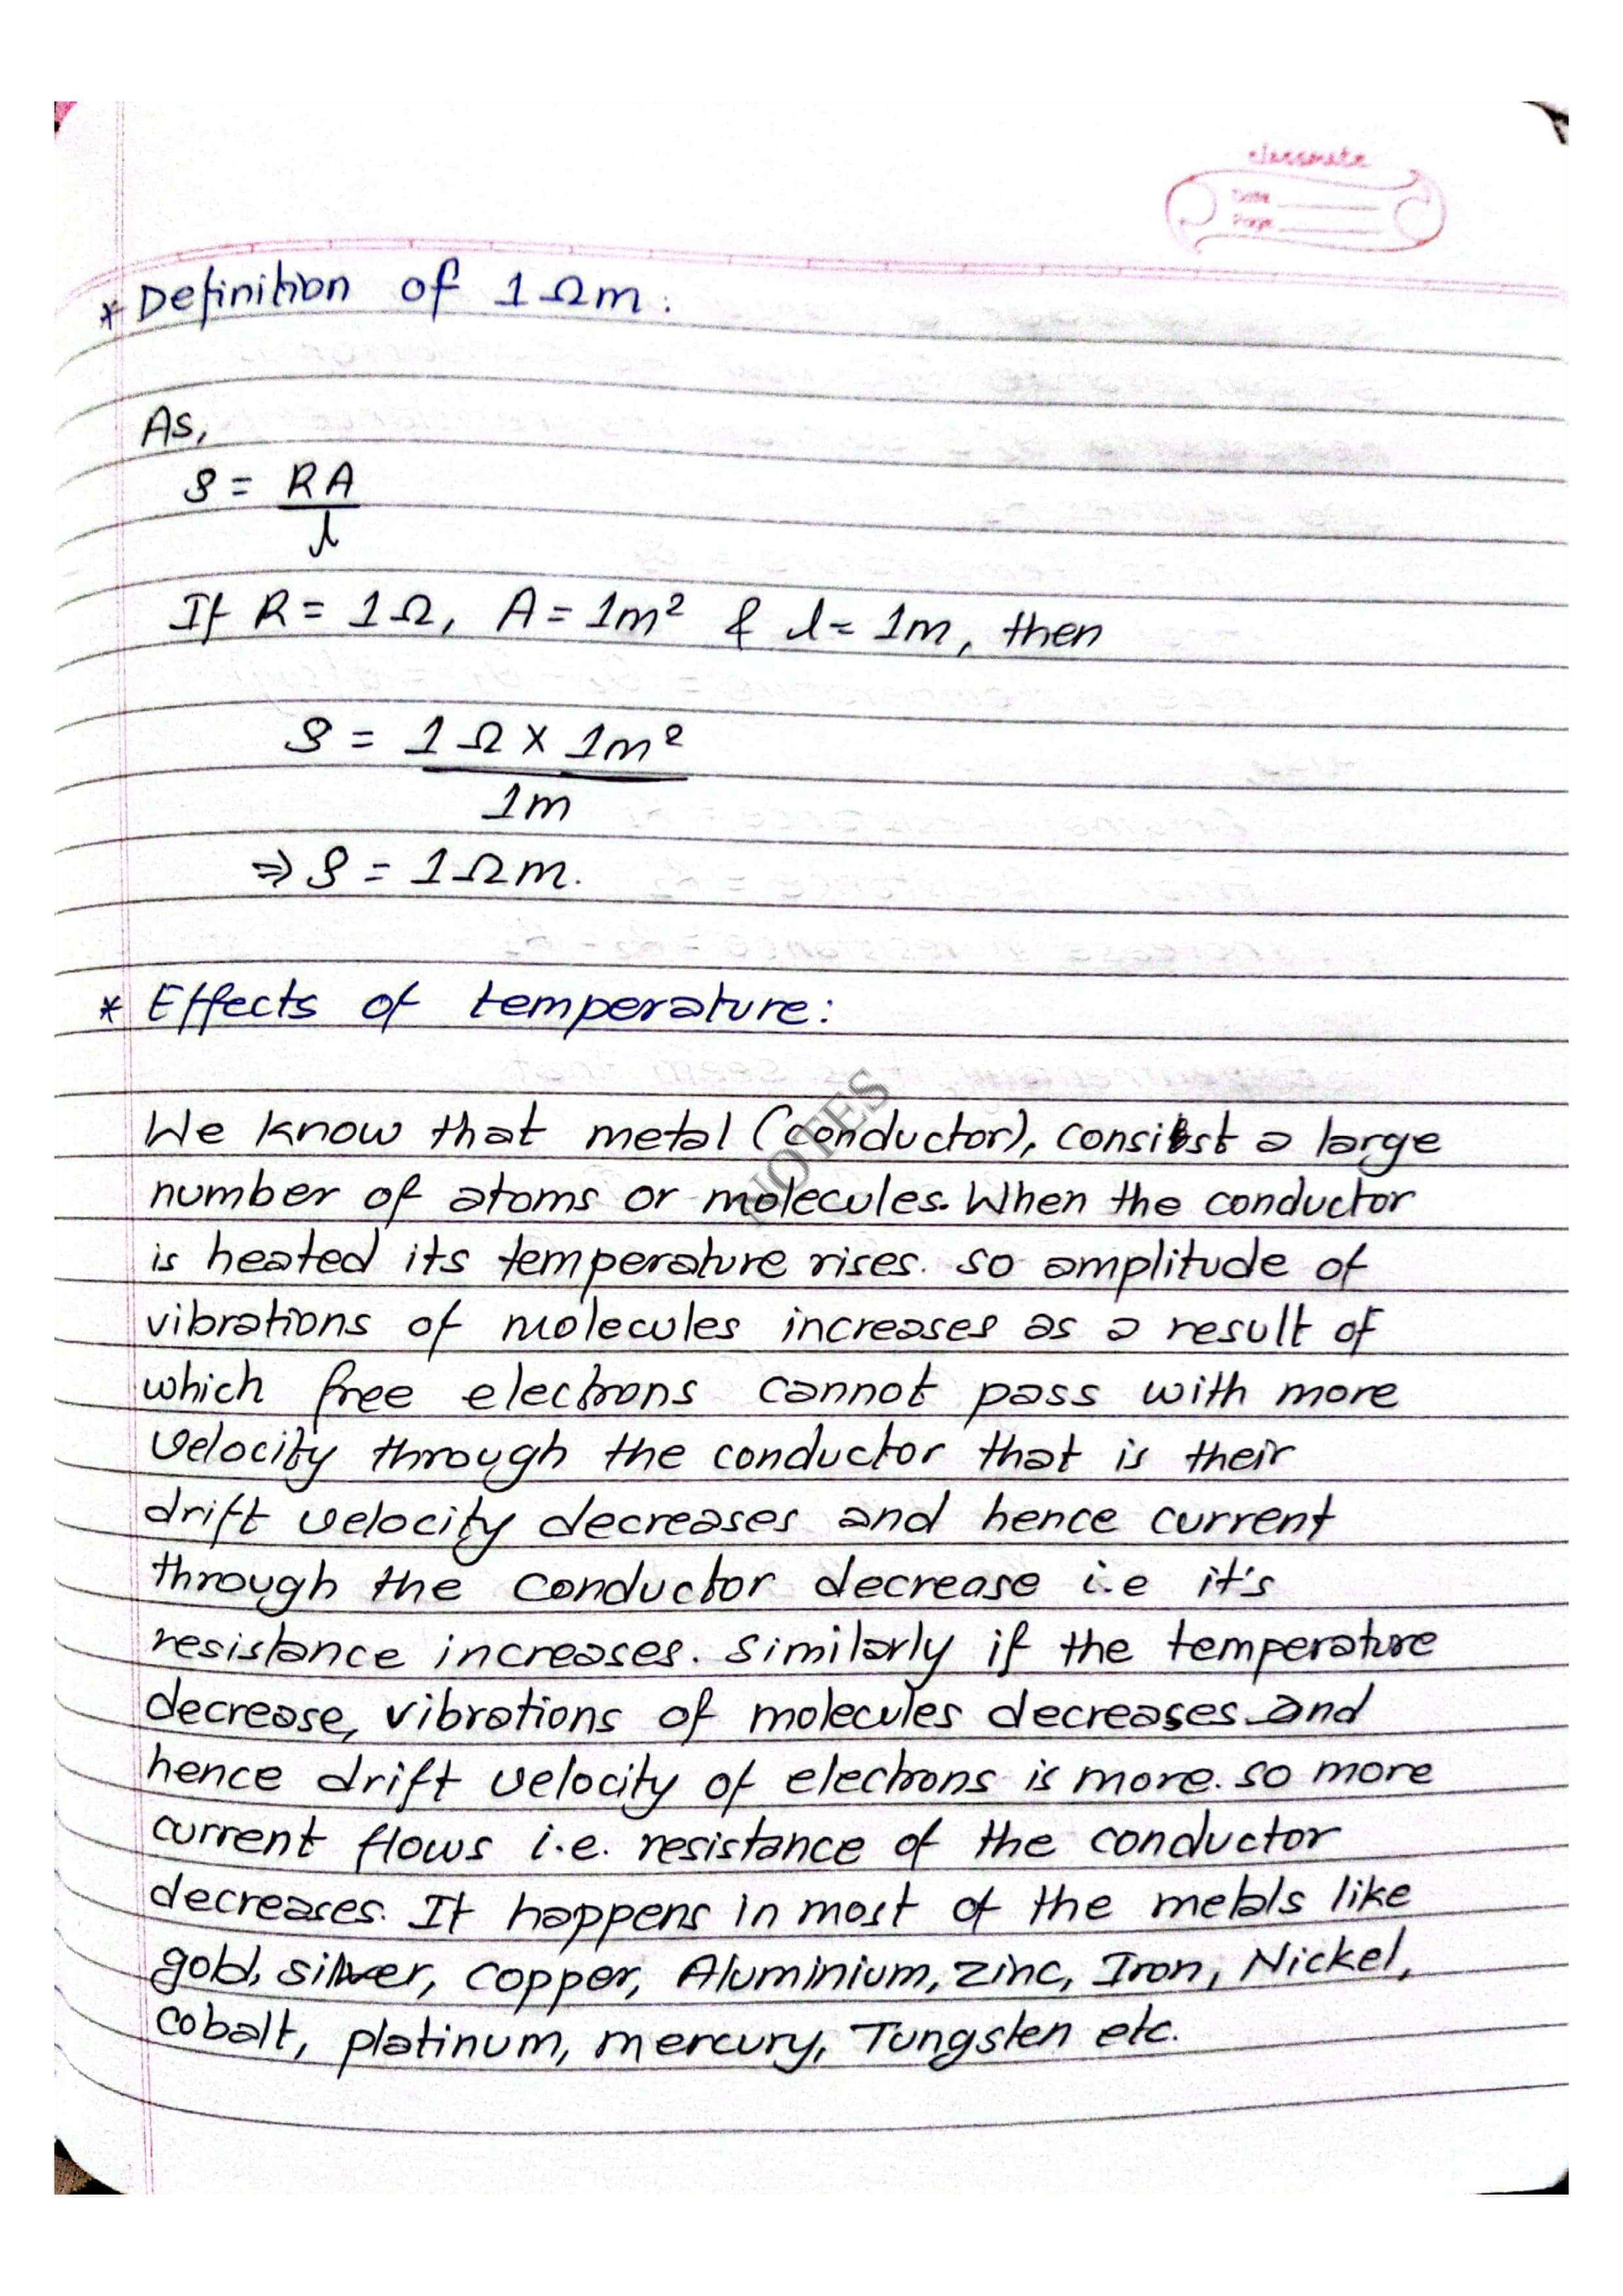 classmate
Date
Page
* Definition of 1 Ωm :
As,
ρ = RA
l
If R = 1Ω, A = 1m² & l = 1m, then
ρ = 1 Ω × 1m²
1m
⇒ ρ = 1Ωm.
* Effects of temperature:
We know that metal (conductor), consist a large
number of atoms or molecules. When the conductor
is heated its temperature rises. so amplitude of
vibrations of molecules increases as a result of
which free electrons cannot pass with more
velocity through the conductor that is their
drift velocity decreases and hence current
through the conductor decrease i.e it's
resistance increases. similarly if the temperature
decrease, vibrations of molecules decreases and
hence drift velocity of electrons is more. so more
current flows i.e. resistance of the conductor
decreases. It happens in most of the metals like
gold, silver, copper, Aluminium, zinc, Iron, Nickel,
cobalt, platinum, mercury, Tungsten etc.
NOTES